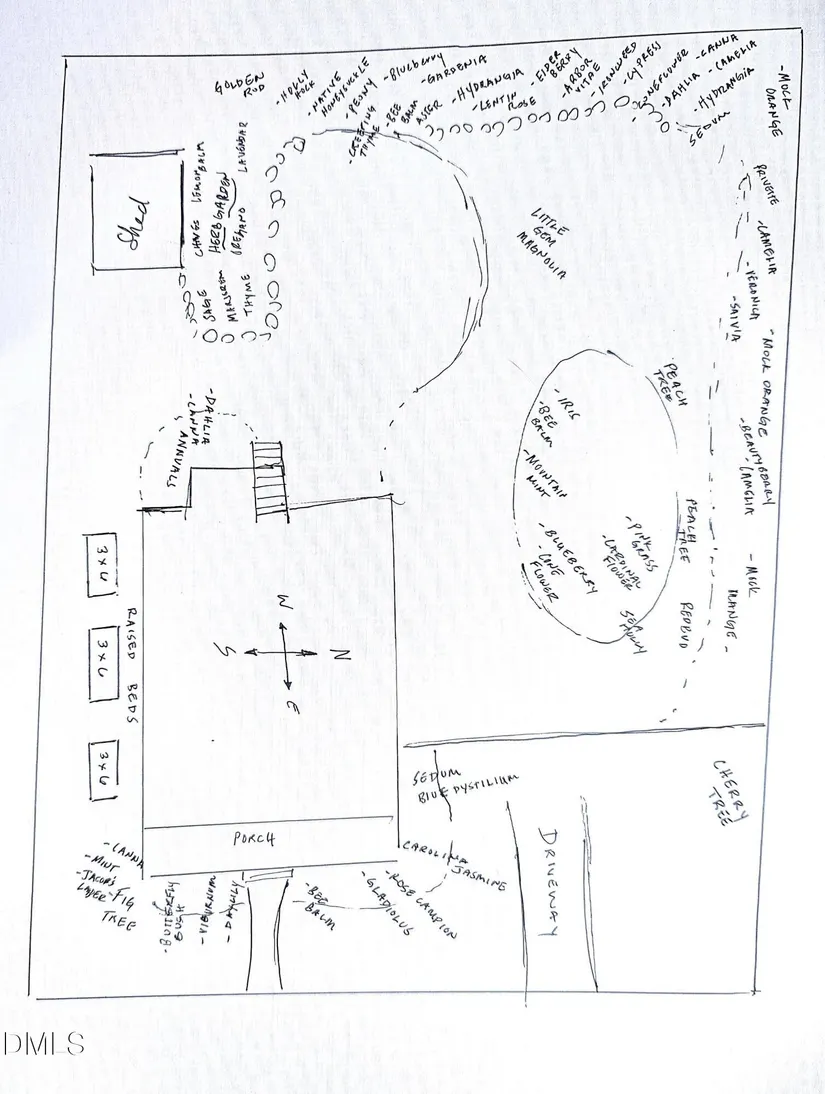 GOLDEN
ROD
- HOLLY
HOCK
- NATIVE
HONEYSUCKLE
- PEONY
- CREEPING
THYME
- BEE
BALM
ASTER
- Blueberry
- GARDENIA
- HYDRANGIA
- LENTIN
ROSE
- ELDER
BERRY
- ARBOR
VITAE
- IRONWEED
- CYPRESS
- CONEFLOWER
- DAHLIA
- CANNA
- CAMELIA
- HYDRANGIA
SEDUM
- MOCK
ORANGE
PRIVETE
- CAMELIA
- VERONICA
- SALVIA
- MOCK ORANGE
- BEAUTYBERRY
- CAMELIA
- MOCK
ORANGE -
Shed
CHIVES
LEMON BALM
HERB GARDEN
OREGANO
LAVENDAR
SAGE
MARJOREM
THYME
LITTLE
GEM
MAGNOLIA
PEACH
TREE
PEACH
TREE
REDBUD
- IRIS
- BEE
BALM
- MOUNTAIN
MINT
- BLUEBERRY
- CONE
FLOWER
- PINK
GRASS
- CARDINAL
FLOWER
- DAHLIA
- CANNA
ANNUALS
3 x 6
3 x 6
3 x 6
RAISED BEDS
W
S
N
E
PORCH
SEDUM
BLUE DYSTILIUM
CHERRY
TREE
DRIVEWAY
CAROLINA
JASMINE
- ROSE CAMPION
- GLADIOLUS
- BEE
BALM
- DAYLILY
- VIBURNUM
- BUTTERFLY
BUSH
- CANNA
- MINT
- JACOB'S
LADER
- FIG
TREE
DMLS